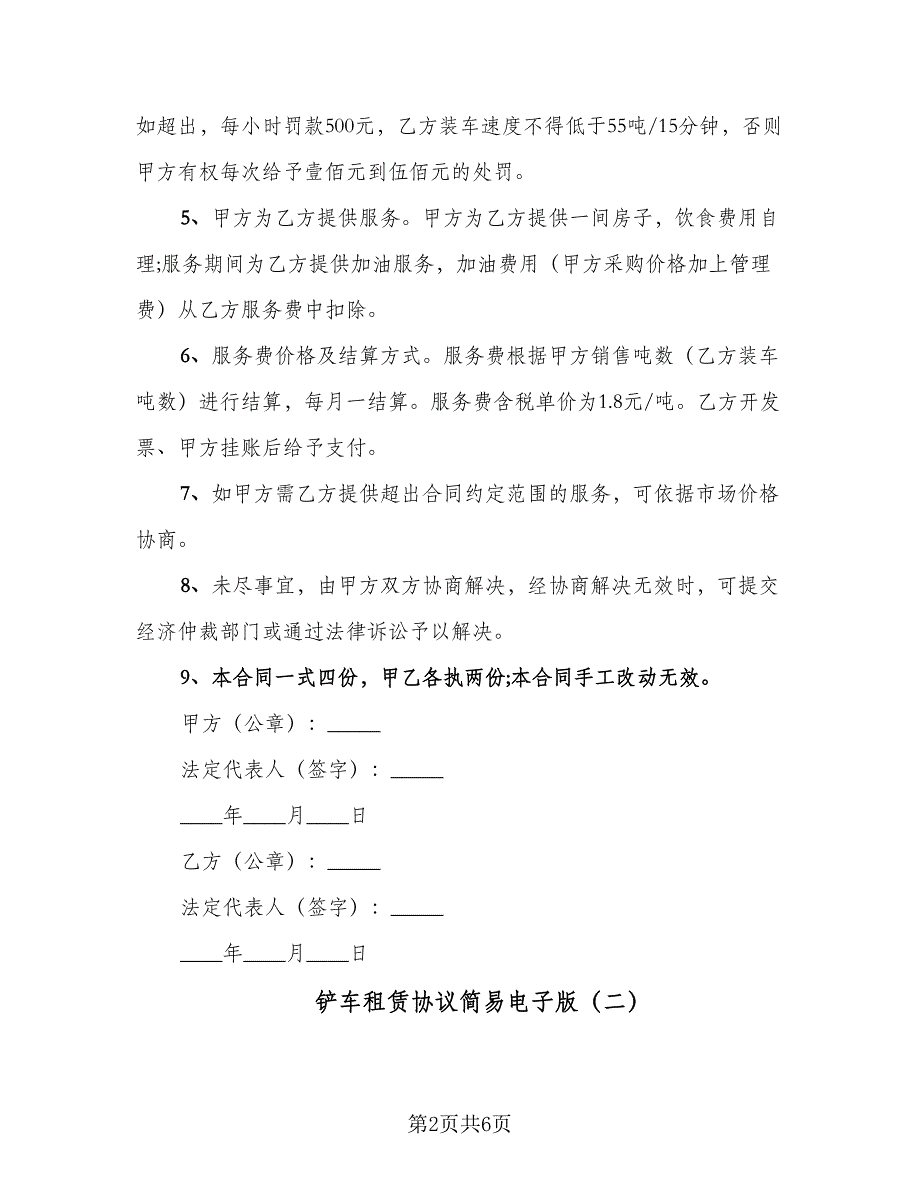 如超出，每小时罚款500元，乙方装车速度不得低于55吨/15分钟，否则
甲方有权每次给予壹佰元到伍佰元的处罚。
5、甲方为乙方提供服务。甲方为乙方提供一间房子，饮食费用自
理;服务期间为乙方提供加油服务，加油费用（甲方采购价格加上管理
费）从乙方服务费中扣除。
6、服务费价格及结算方式。服务费根据甲方销售吨数（乙方装车
吨数）进行结算，每月一结算。服务费含税单价为1.8元/吨。乙方开发
票、甲方挂账后给予支付。
7、如甲方需乙方提供超出合同约定范围的服务，可依据市场价格
协商。
8、未尽事宜，由甲方双方协商解决，经协商解决无效时，可提交
经济仲裁部门或通过法律诉讼予以解决。
9、本合同一式四份，甲乙各执两份;本合同手工改动无效。
甲方（公章）：_____
法定代表人（签字）：_____
____年____月____日
乙方（公章）：_____
法定代表人（签字）：_____
____年____月____日
铲车租赁协议简易电子版（二）
第2页共6页